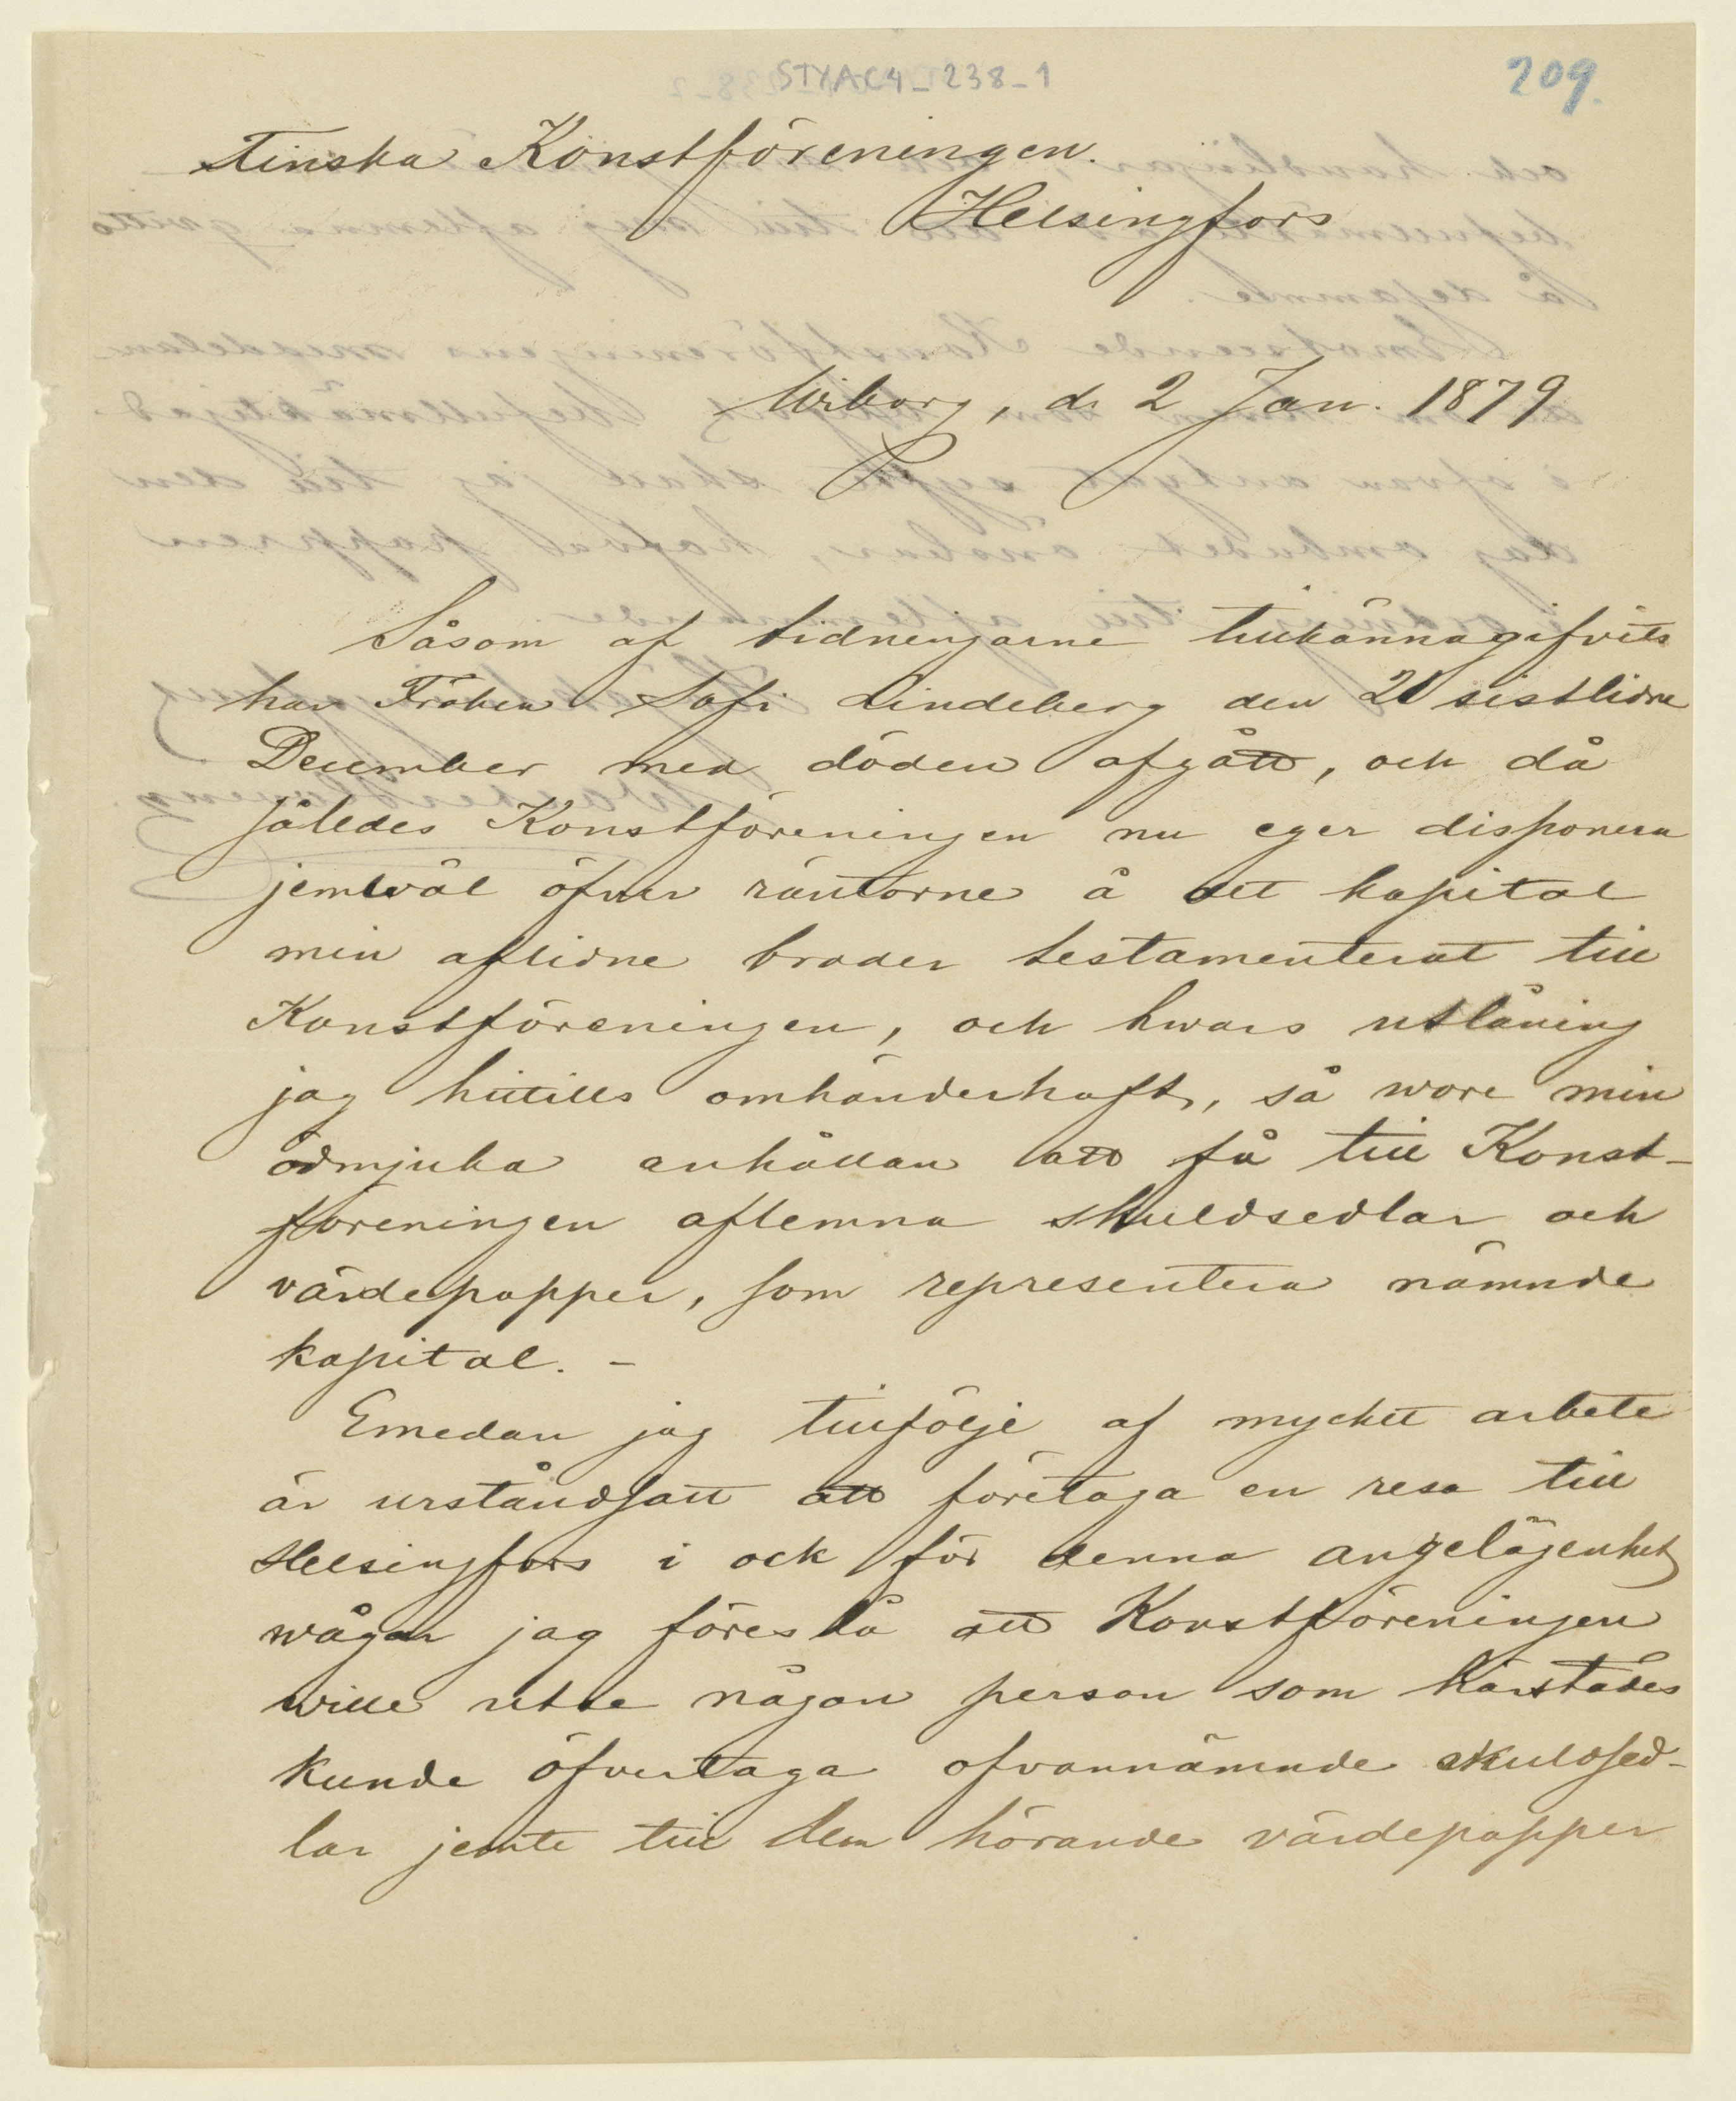 STYAC4_238_1
209.
Finska Konstföreningen.
Helsingfors
Wiborg, d. 2 Jan. 1879
Såsom af tidningarne tillkännagifvits
har Fröken Sofi Lindeberg den 21 sistlidne
December med döden afgått, och då
således Konstföreningen nu eger disponera
jemväl öfver räntorne å det kapital
min aflidne broder testamenterat till
Konstföreningen, och hwars utlåning
jag hittills omhänderhaft, så wore min
ödmjuka anhållan att få till Konst-
föreningen aflemna skuldsedlar och
värdepapper, som representera nämnde
kapital. –
Emedan jag tillfölje af mycket arbete
är urståndsatt att företaga en resa till
Helsingfors i ock för denna angelägenhet
wågar jag föreslå att Konstföreningen
wille utse någon person som härstädes
kunde öfvertaga ofvannämnde skuldsed-
lar jemte till dem hörande värdepapper